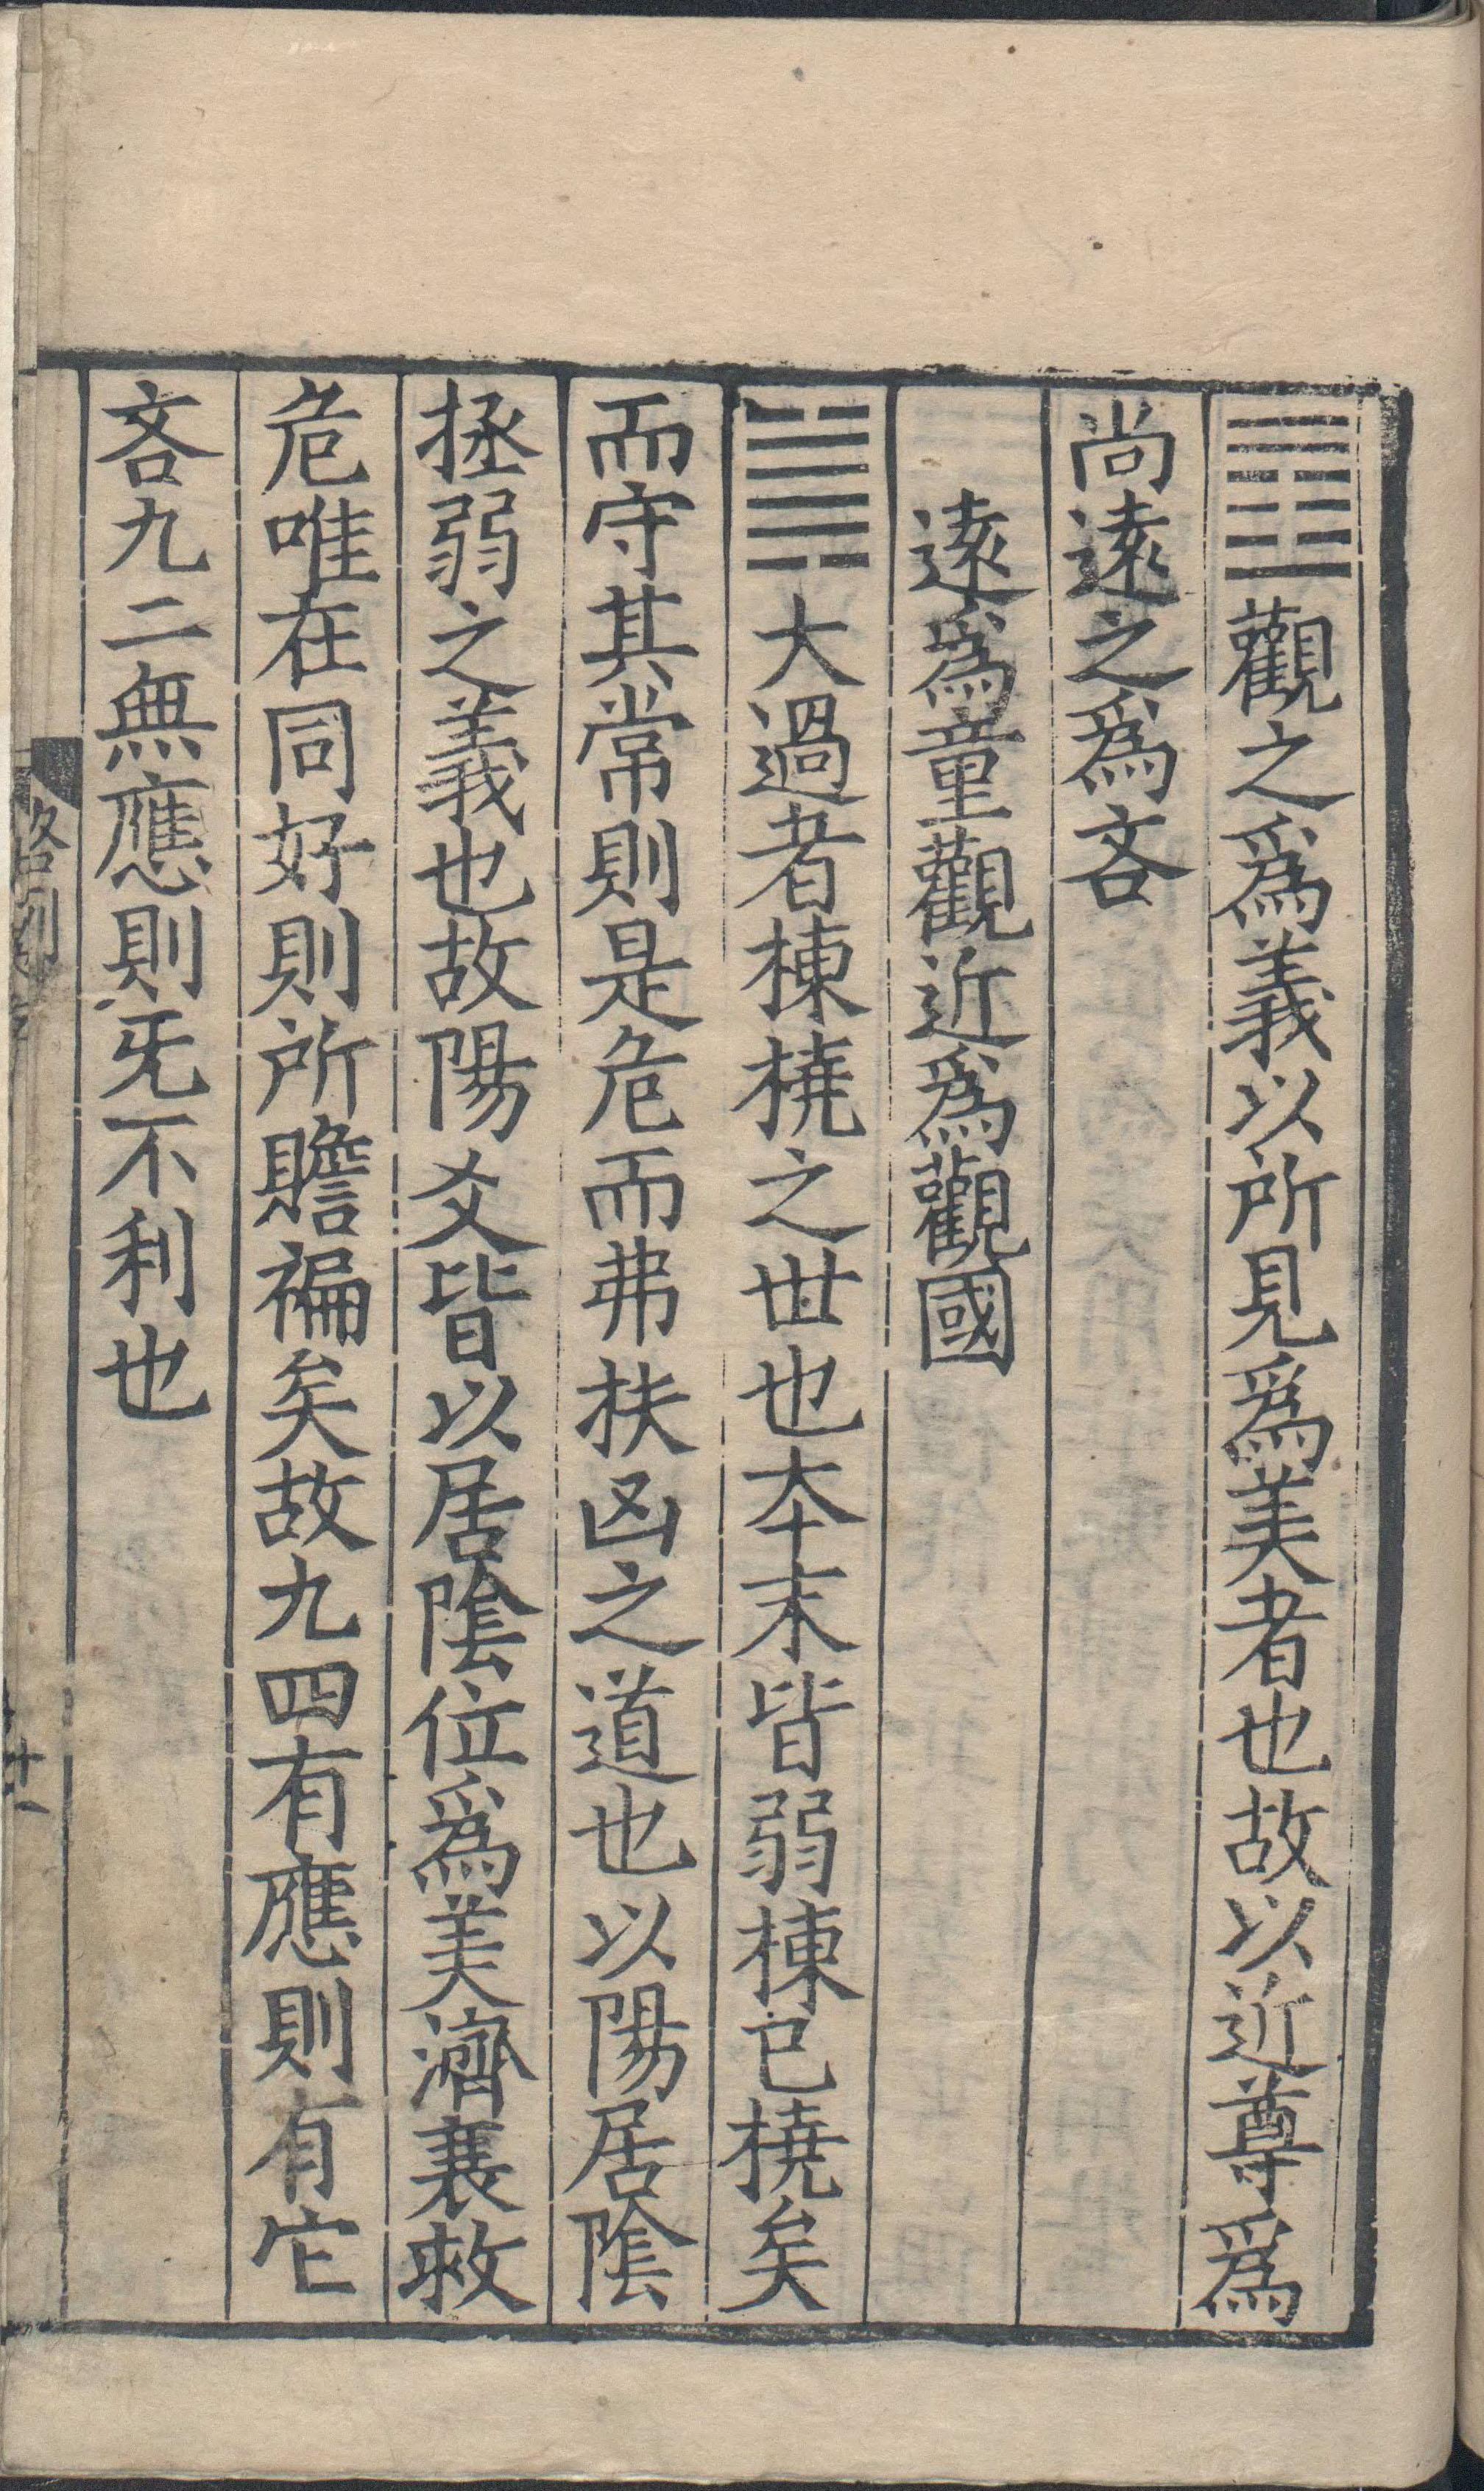 觀之爲義以所見爲美者也故以近尊爲
尚遠之爲吝
遠爲童觀近爲觀國
䷛大過者棟橈之世也本末皆弱棟已橈矣
而守其常則是危而弗扶凶之道也以陽居陰
拯弱之義也故陽爻皆以居陰位爲美濟衰救
危唯在同好則所贍褊矣故九四有應則有它
吝九二無應則无不利也